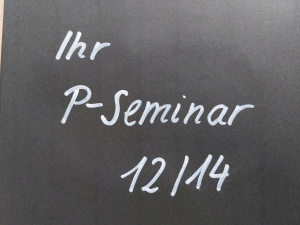 Ihr
P-Seminar
12/14